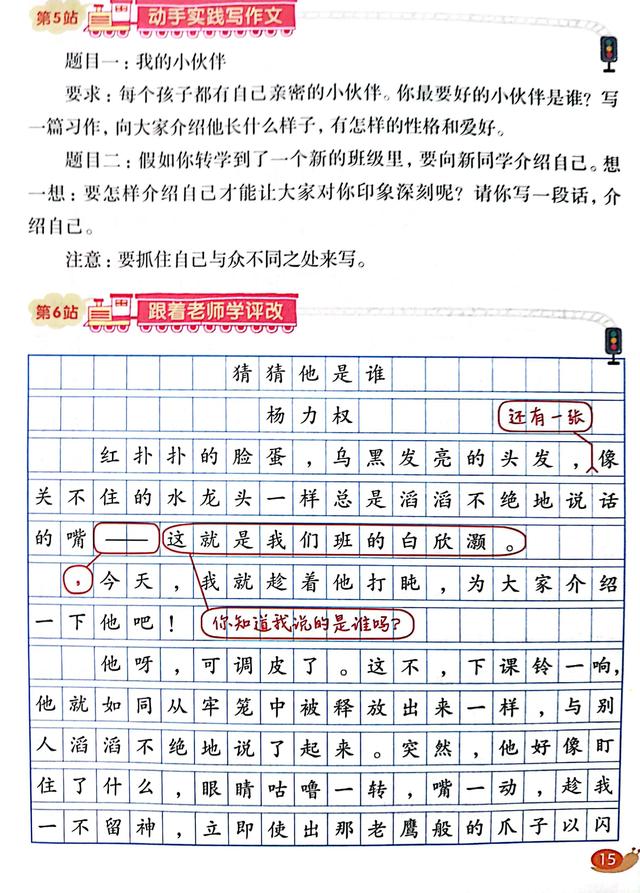 第5站 动手实践写作文
题目一：我的小伙伴
要求：每个孩子都有自己亲密的小伙伴。你最要好的小伙伴是谁？写
一篇习作，向大家介绍他长什么样子，有怎样的性格和爱好。
题目二：假如你转学到了一个新的班级里，要向新同学介绍自己。想
一想：要怎样介绍自己才能让大家对你印象深刻呢？请你写一段话，介
绍自己。
注意：要抓住自己与众不同之处来写。
第6站 跟着老师学评改
猜猜他是谁
杨力权
还有一张
红扑扑的脸蛋，乌黑发亮的头发，像
关不住的水龙头一样总是滔滔不绝地说话
的嘴——这就是我们班的白欣灏。
，今天，我就趁着他打盹，为大家介绍
一下他吧！
你知道我说的是谁吗？
他呀，可调皮了。这不，下课铃一响，
他就如同从牢笼中被释放出来一样，与别
人滔滔不绝地说了起来。突然，他好像盯
住了什么，眼睛咕噜一转，嘴一动，趁我
一不留神，立即使出那老鹰般的爪子以闪
15